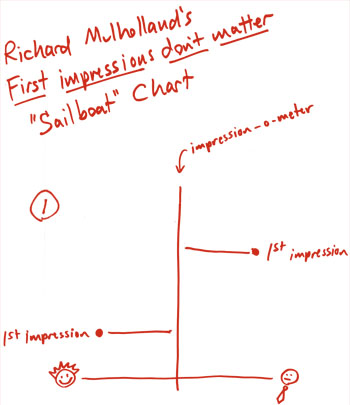 Richard Mulholland's
First impressions don't matter
"Sailboat" Chart
impression-o-meter
1
1st impression
1st impression